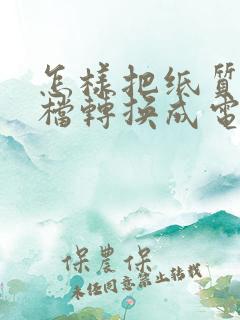 怎样把纸質
檔轉换成電
保農保
未任同意禁止转载